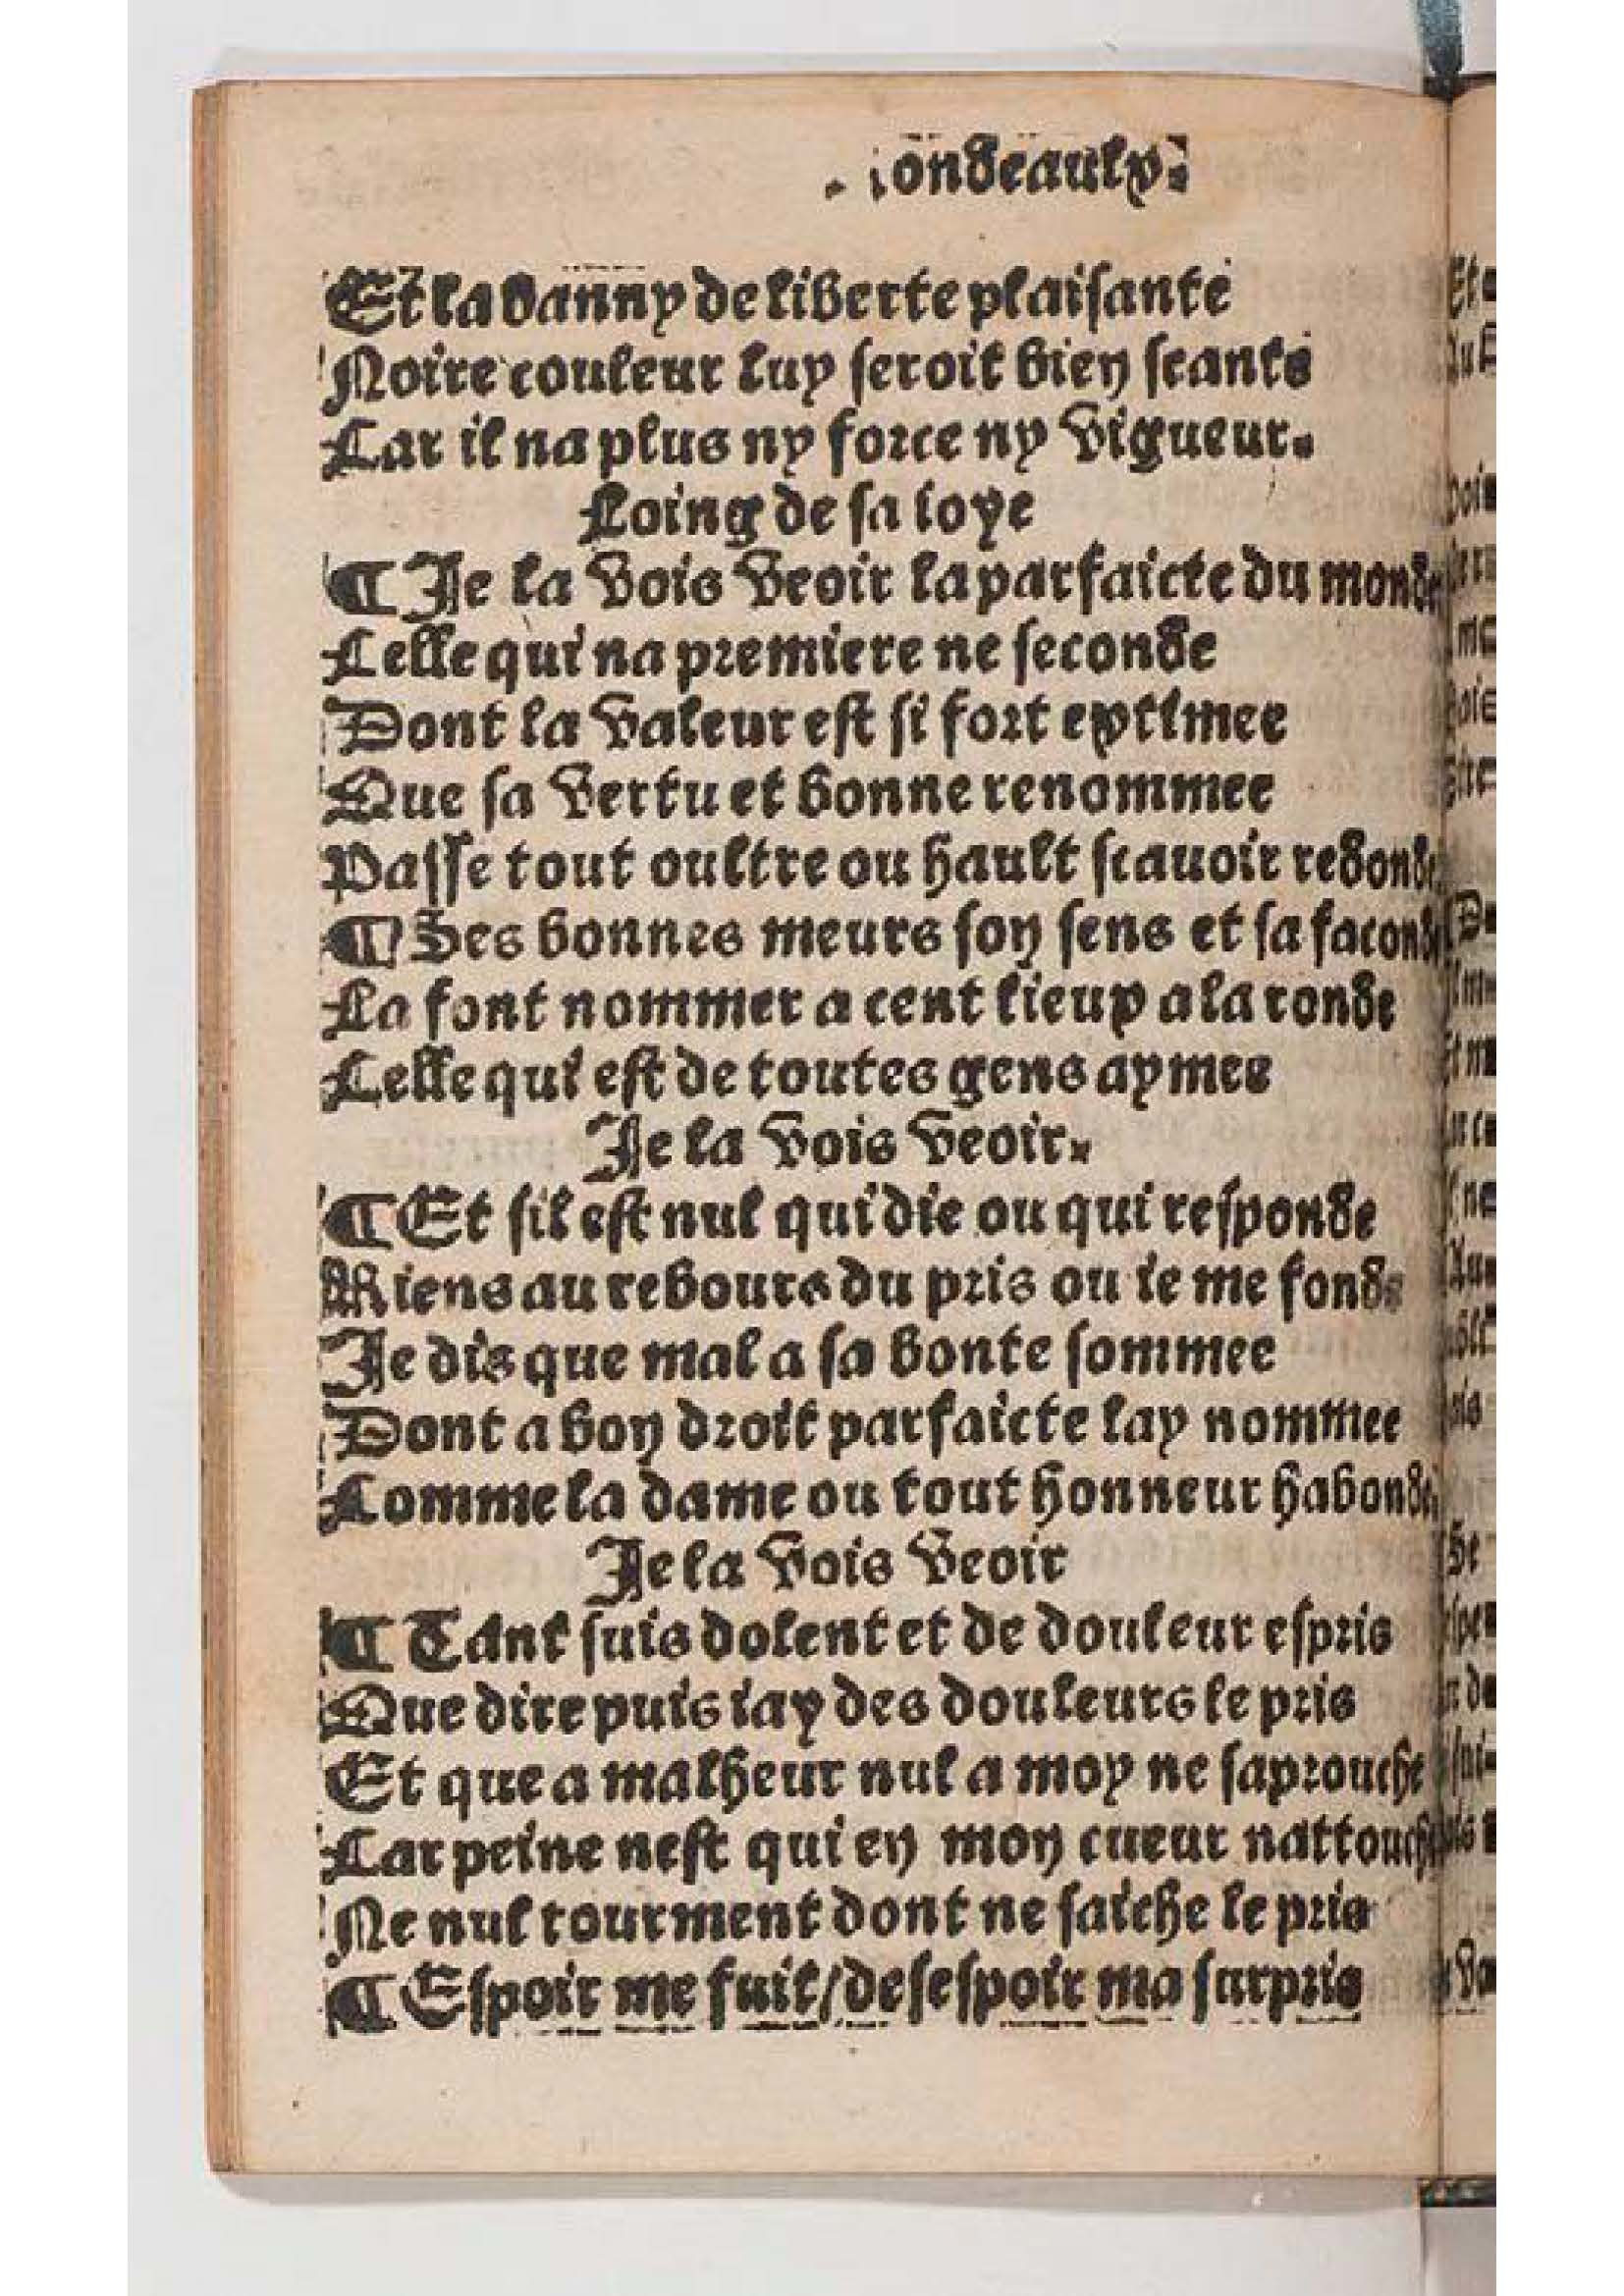 Rondeaulx.
Et la banny de liberte plaisante
Noire couleur luy seroit bien seante
Car il na plus ny force ny vigueur.
Loing de sa ioye
¶ Je la vois veoir la parfaicte du monde
Celle qui na premiere ne seconde
Dont la valeur est si fort extimee
Que sa vertu et bonne renommee
Passe tout oultre ou hault scauoir redonde
¶ Ses bonnes meurs son sens et sa faconde
La font nommer a cent lieux a la ronde
Celle qui est de toutes gens aymee
Je la vois veoir.
¶ Et sil est nul qui die ou qui responde
Riens au rebours du pris ou ie me fonde
Je dis que mal a sa bonte sommee
Dont a bon droit parfaicte lay nommee
Comme la dame ou tout honneur habonde.
Je la vois veoir
¶ Tant suis dolent et de douleur espris
Que dire puis iay des douleurs le pris
Et que a malheur nul a moy ne saprouche
Car peine nest qui en mon cueur nattouche
Ne nul tourment dont ne saiche le pris
¶ Espoir me fuit/desespoir ma surpris